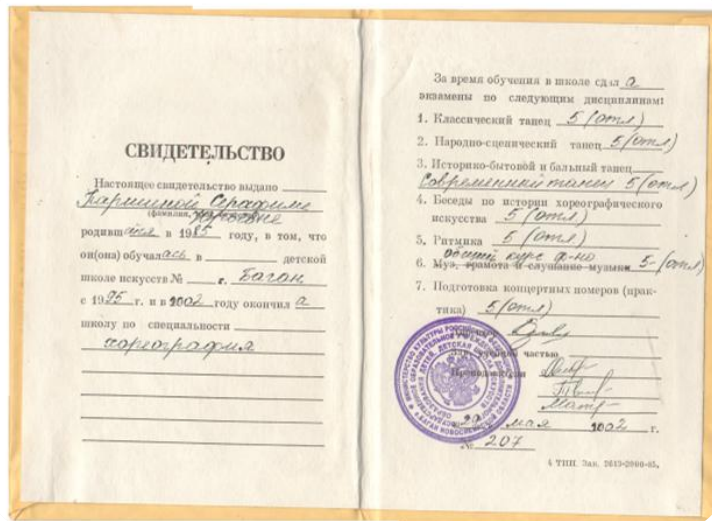 СВИДЕТЕЛЬСТВО
Настоящее свидетельство выдано
Серафиме
(фамилия,
родившейся в 1985 году, в том, что
он(она) обучалась в детской
школе искусств № г. Баган
с 1995 г. и в 2002 году окончила
школу по специальности
хореография
За время обучения в школе сдала
экзамены по следующим дисциплинам:
1. Классический танец 5 (отл)
2. Народно-сценический танец 5 (отл)
3. Историко-бытовой и бальный танец
Современный танец 5 (отл)
4. Беседы по истории хореографического
искусства 5 (отл)
5. Ритмика 5 (отл)
общий курс ф-но
6. Муз. грамота и слушание музыки 5- (отл)
7. Подготовка концертных номеров (прак-
тика) 5 (отл)
учебной частью
мая 2002 г.
№ 207
4 ТИП. Зак. 2613-2000-85.